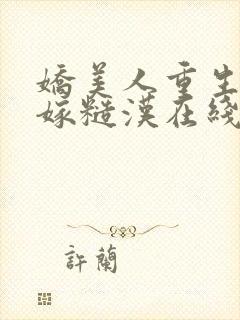 嬌美人重生
嫁糙漢在綫
許蘭